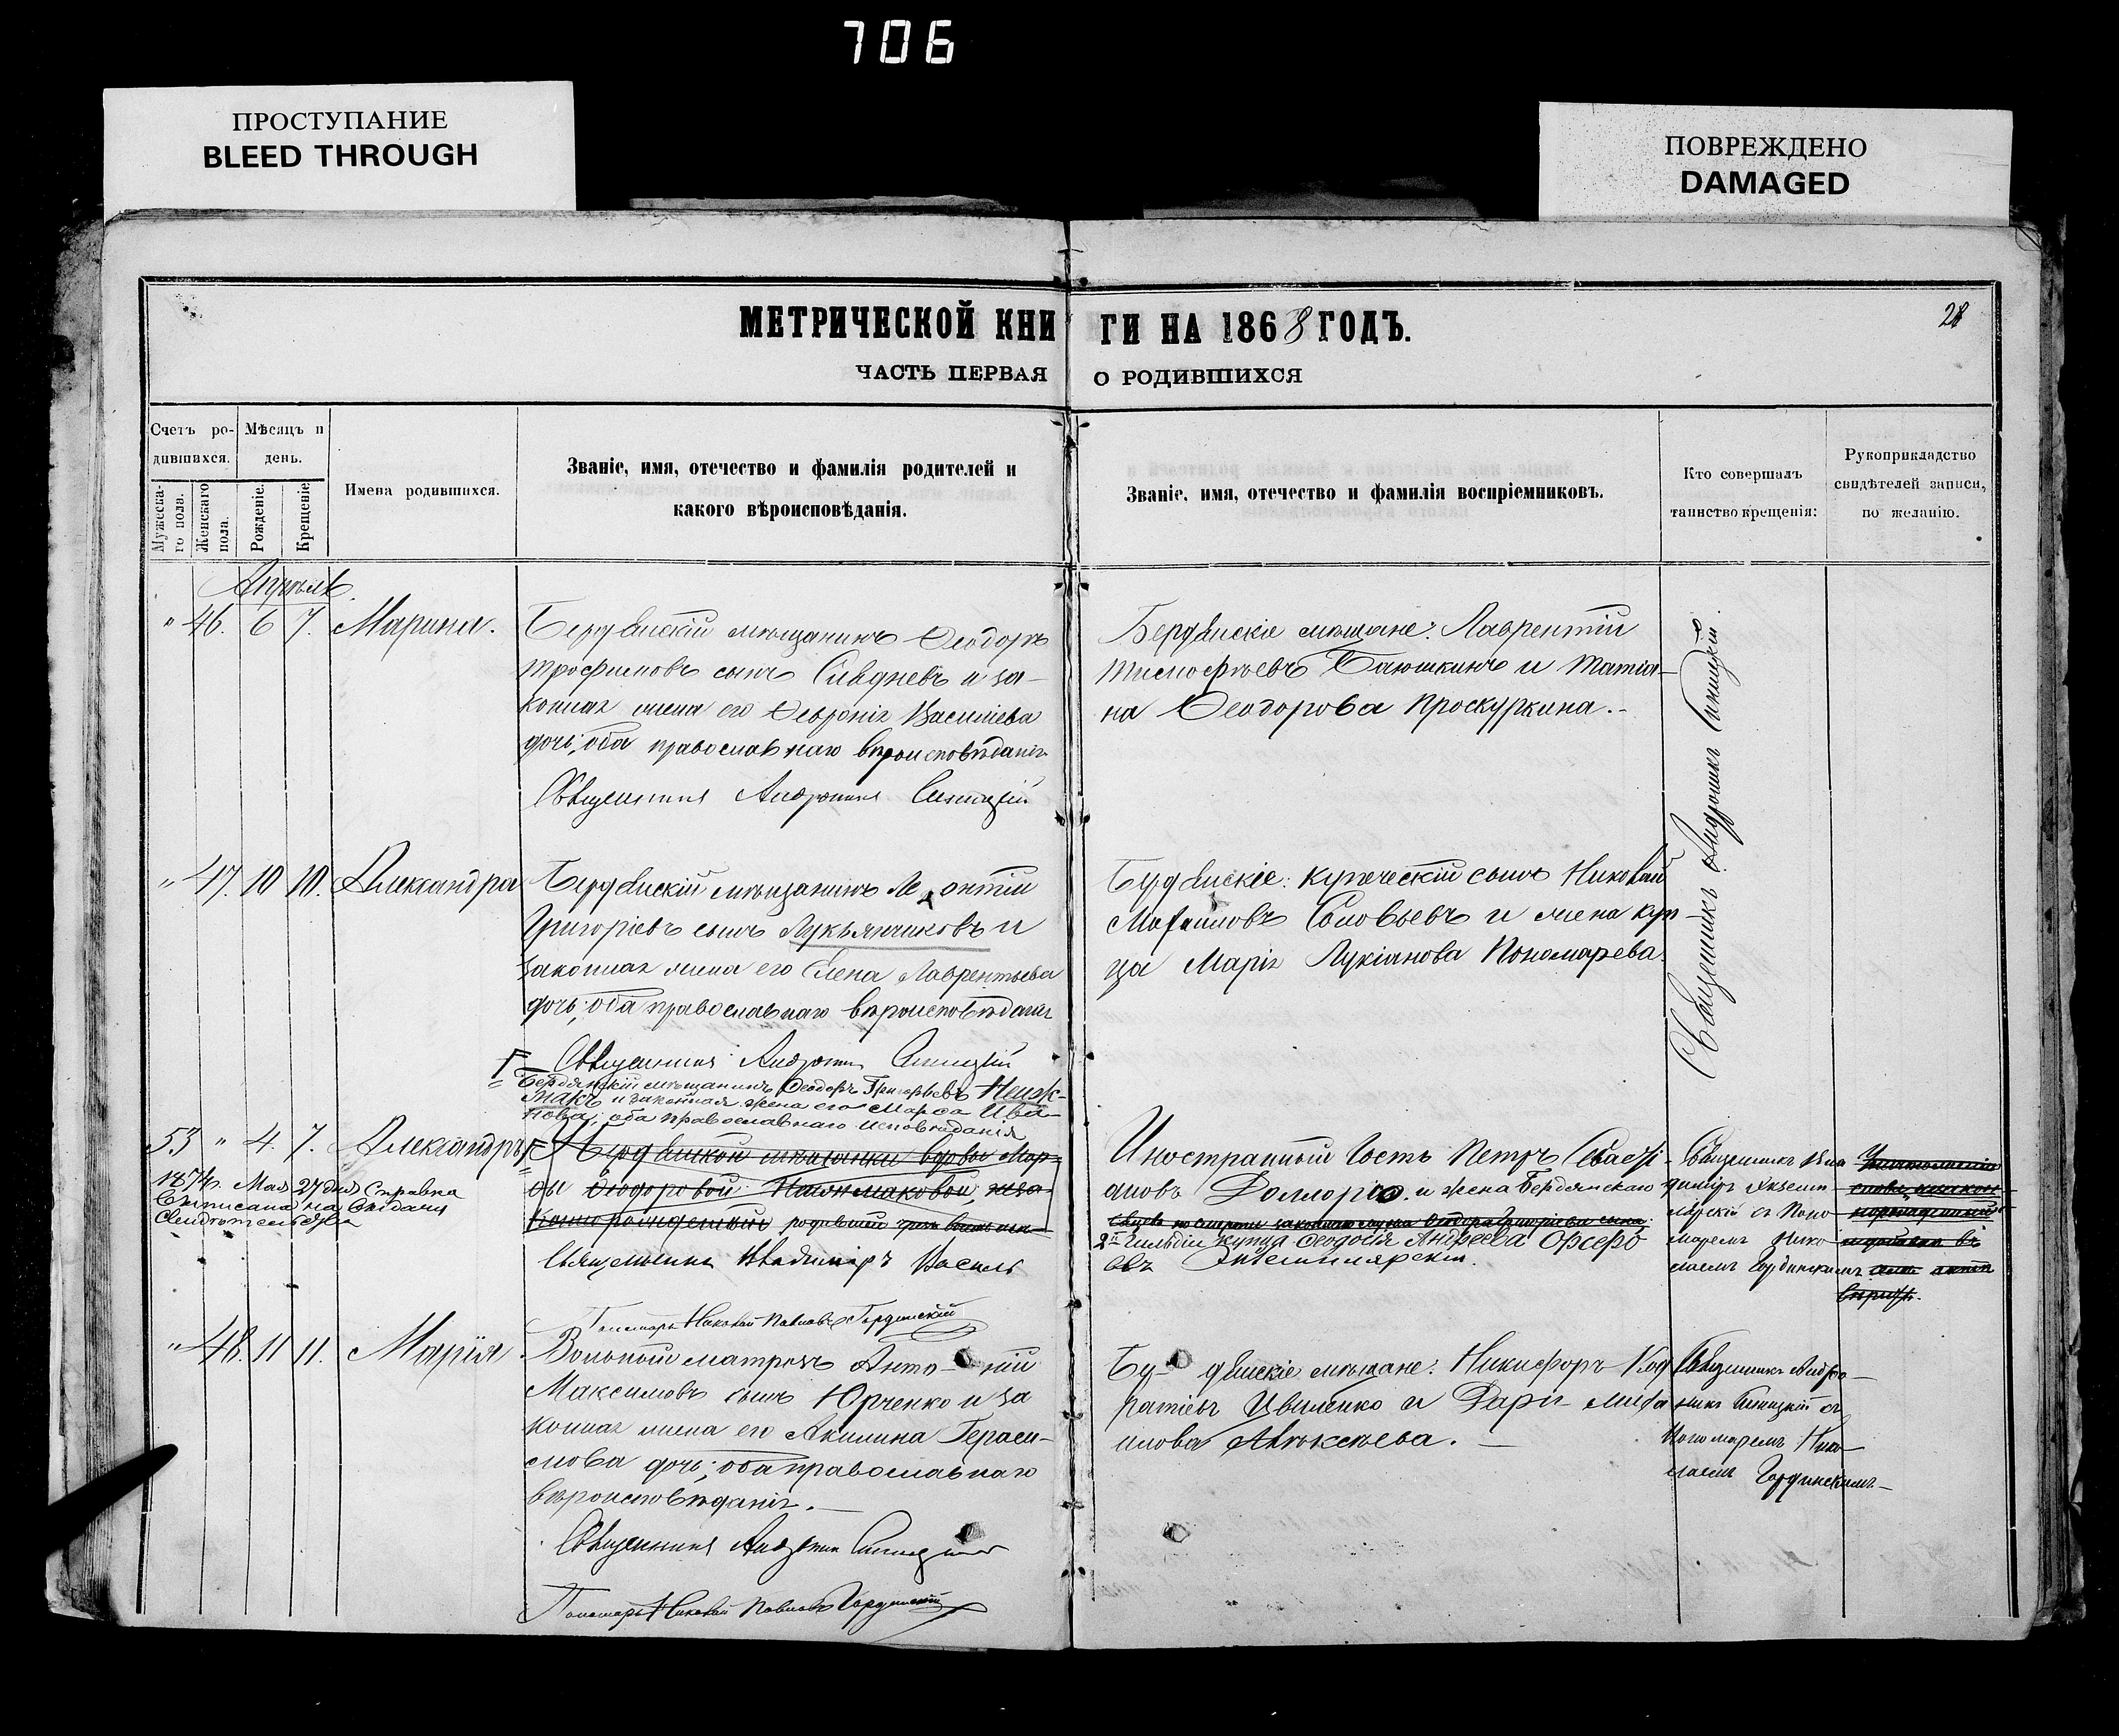 706
ПРОСТУПАНИЕ
BLEED THROUGH
ПОВРЕЖДЕНО
DAMAGED
28
МЕТРИЧЕСКОЙ КНИГИ НА 1868 ГОДЪ.
ЧАСТЬ ПЕРВАЯ О РОДИВШИХСЯ
Счетъ ро-
дившихся.
Мужеска-
го пола.
Женскаго
пола.
Мѣсяцъ и
день.
Рожденіе.
Крещеніе
Имена родившихся.
Званіе, имя, отечество и фамилія родителей и
какого вѣроисповѣданія.
Званіе, имя, отечество и фамилія воспріемниковъ.
Кто совершалъ
таинство крещенія:
Рукоприкладство
свидѣтелей записи,
по желанію.
Апрѣль.
" 46. 6 7. Марина.
Бердянскій мѣщанинъ Ѳеодоръ
Трофимовъ сынъ и за-
конная жена его Февронія Василіева
дочь; оба православнаго вѣроисповѣданія
Священникъ Андроникъ Синицкій
Бердянскіе мѣщане: Лаврентій
Тимофѣевъ Баюшкинъ и Татiа-
на Ѳеодорова Проскуркина.-
Священникъ Андроникъ Синицкій.
" 47. 10 10. Александра
Бердянскій мѣщанинъ Леонтій
Григоріевъ сынъ Лукьянчиковъ и
законная жена его Елена Лаврентьева
дочь; оба православнаго вѣроисповѣданія
Священникъ Андроникъ Синицкій
Бердянскіе: купеческій сынъ Николай
Михаиловъ Соловьевъ и жена куп-
ца Марія Лукіанова Пономарева.
Бердянскій мѣщанинъ Ѳеодоръ Григорьевъ Неиж-
макъ и законная жена его Марѳа Ива-
нова; оба православнаго исповѣданія
53 " 4. 7. Александръ
1874г. Мая 27 дня Справка
Бердянской мѣщанки вдовы Мар-
ѳы Ѳеодоровой Неижмаковой неза-
коннорожденный
Священникъ Владиміръ
Экземплярскій.
Пономарь Николай Павловъ Гординскій
Иностранный Гость Петръ Севасті-
ановъ и жена Бердянскаго
2й Гильдіи купца Ѳеодосія Андреева
Священникъ Вла-
диміръ Экземп-
лярскій съ Поно-
маремъ Нико-
лаемъ Гординскимъ
" 48. 11 11. Марія
Вольный матросъ Анто-ній
Максимовъ сынъ Юрченко и за
конная жена его Акилина Гераси-
мова дочь; оба православнаго
вѣроисповѣданія.-
Священникъ Андроникъ Синицкій
Пономарь Николай Павловъ Гординскій
Бер- дянскіе мѣщане: Никифоръ Код
ратіевъ Цвиленко и Дарія Миха
илова Алексѣева. -
Священникъ Андро-
никъ Синицкій съ
Пономаремъ Нико-
лаемъ Гординскимъ-